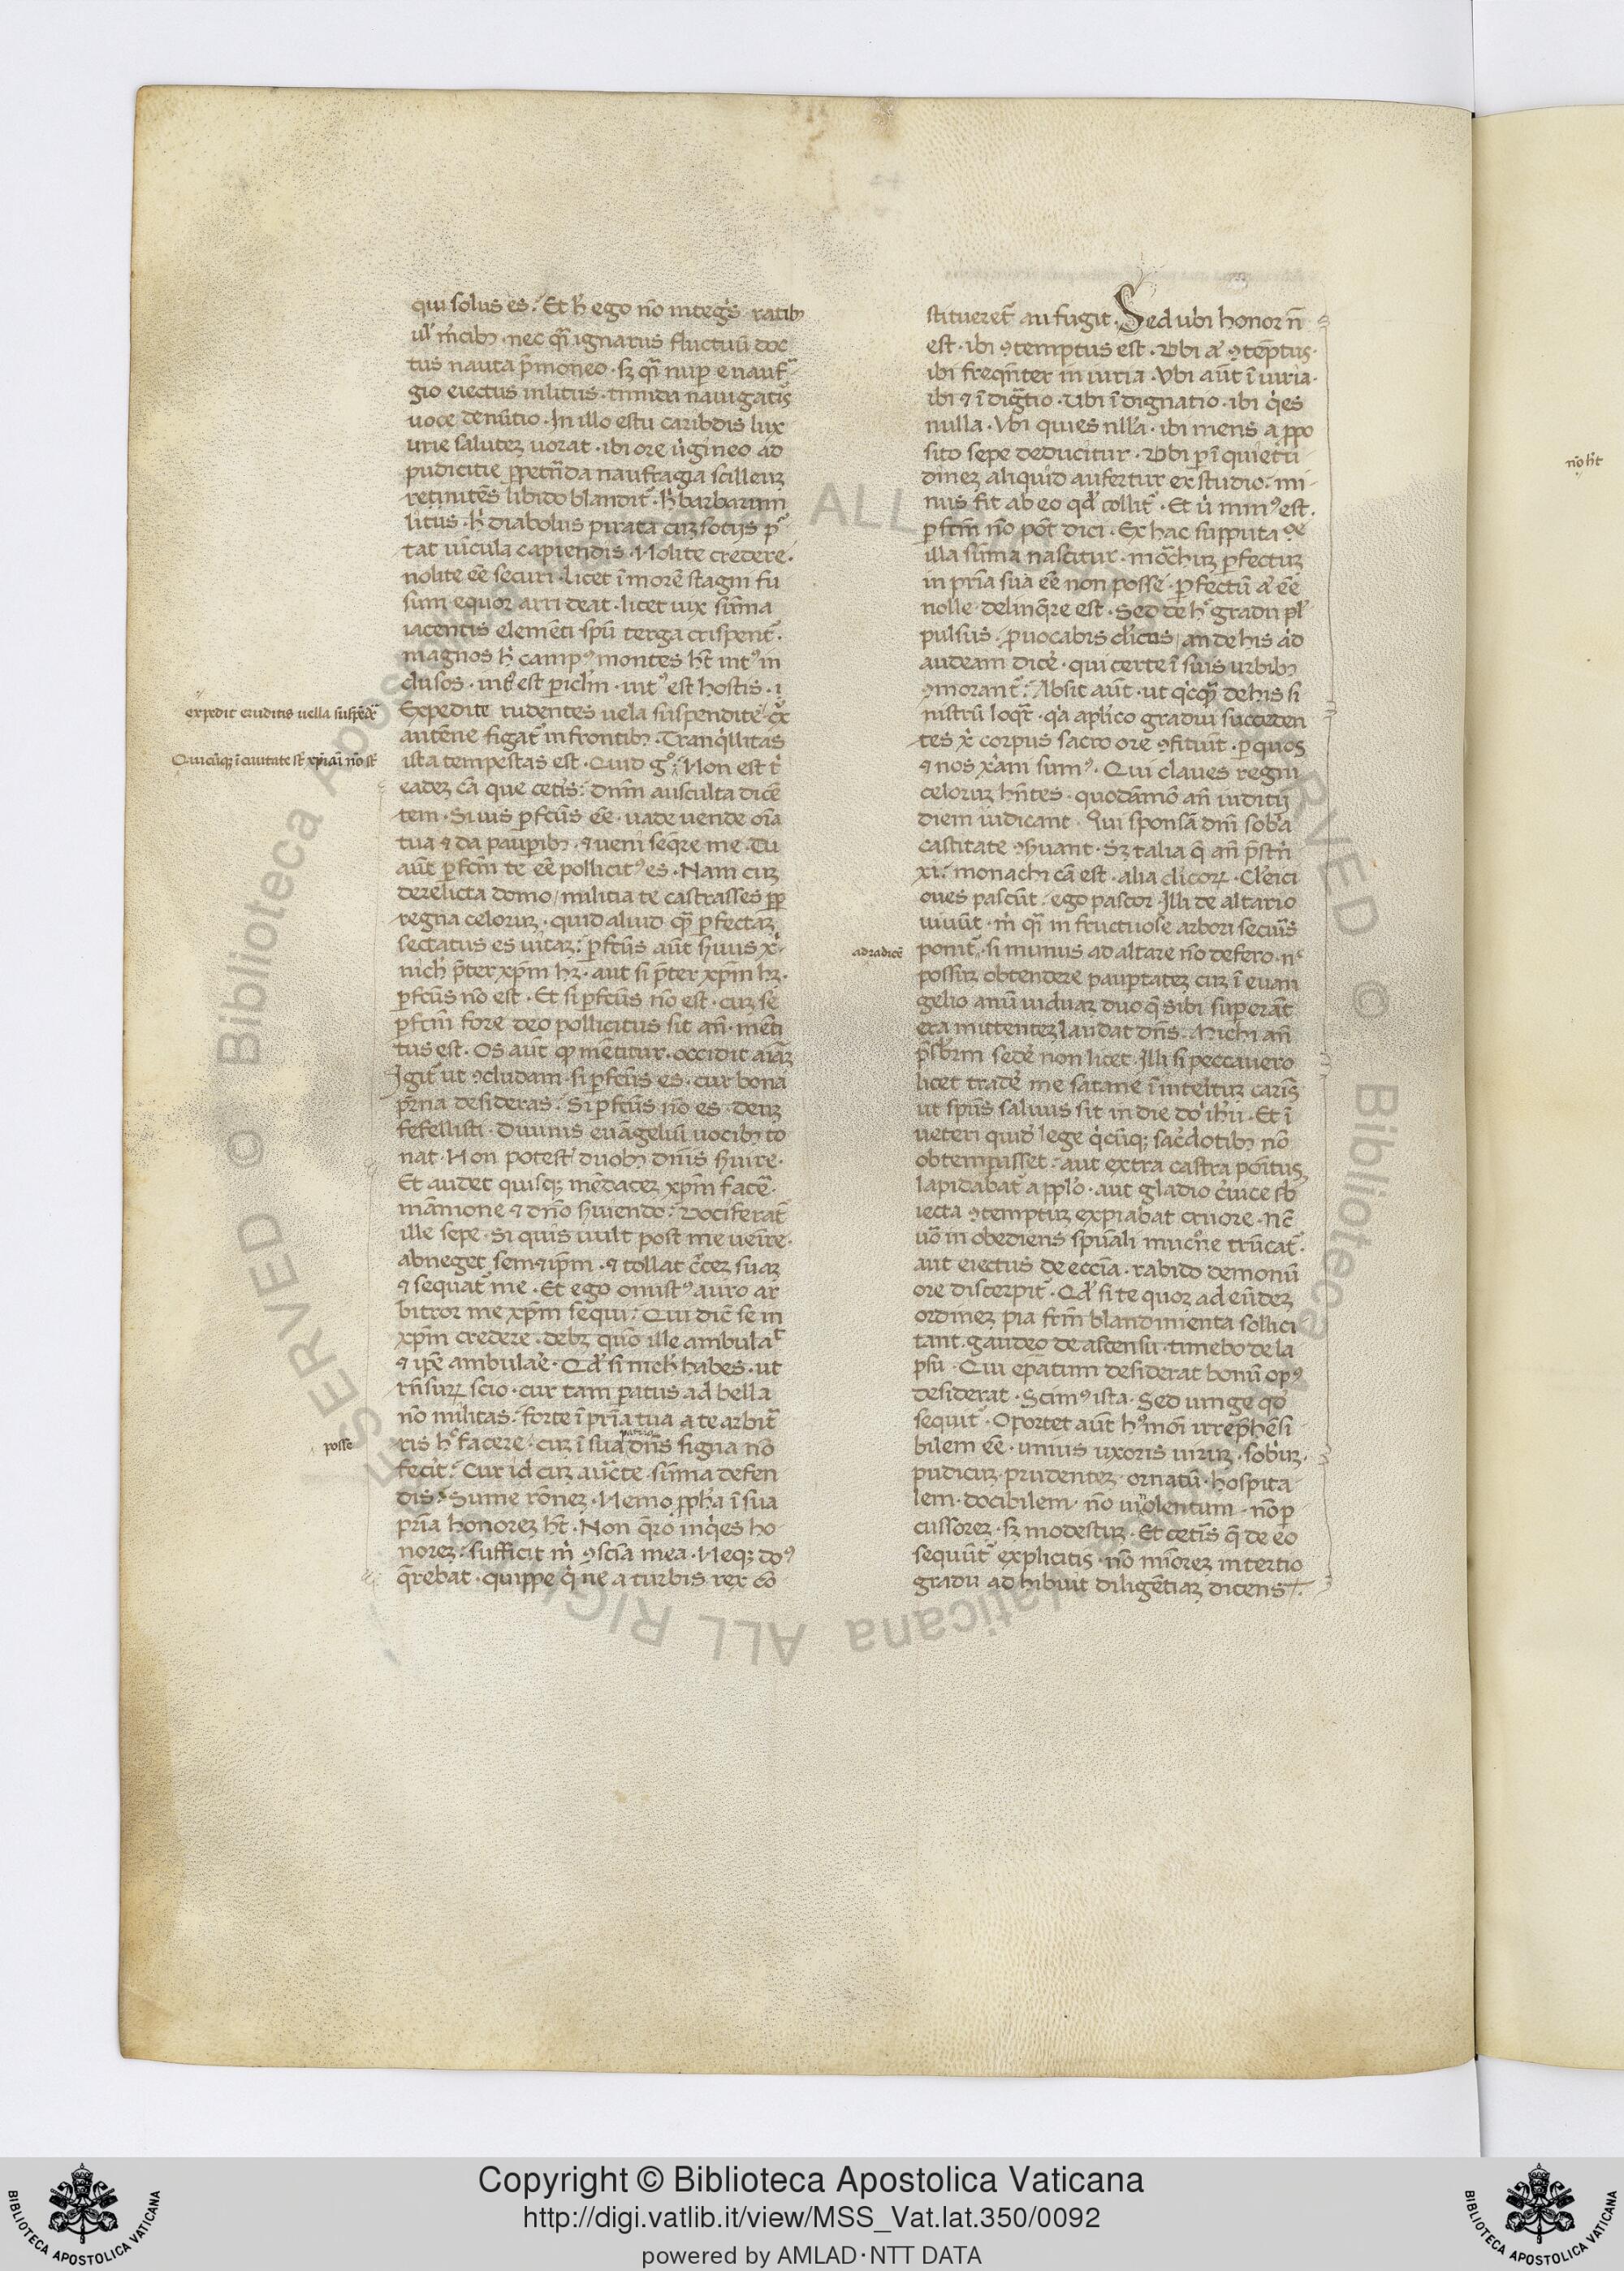 qui solus es? Et h̄ ego nō integ̓s ratib3
ul̓ m̓cib3 · nec q̄ı ignarus fluctuū doc
tus nauta p̄moneo · s3 q̄ı nup̱ e nauf̓
gio eiectus in litus · timida nauigat̓
uoce denūtio · In illo estu caribdis lux
urie salutez uorat · ibi ore u̓gineo ad
pudicitie p̱petrāda naufragia scilleuz
retinitēs libido blandit̓ · h̓ barbarum
litus · h̓ diabolus pirata cuz sotijs p̓
tat uīcula capiendis · Nolite credere ·
nolite eē securi · licet ī morē stagni fu
sum equor arrideat · licet uix sūma
iacentis elemēti spū terga crispent̓ ·
magnos h̓ campꝰ montes ht̄ intꝰ in
clusos · int̓ est p̱icl̄m · intꝰ est hostis ·
Expedite rudentes uela suspendite · c̓x
antēne figat̓ in frontib3 · Tranq̓llitas
ista tempestas est · Quid gͦ? Non est t̓
eadez cā que cet̓is? Dnm̄ ausculta dicē
tem · Si uis p̱fcūs eē · uade uende oīa
tua ⁊ da paup̱ib3 · ⁊ ueni seq̄re me · Tu
aūt p̱fcm̄ te eē pollicitꝰ es · Nam cuz
derelicta domo / militia te castrasses pp̱
regna celoruz · quid aliud q̄ p̱fectaz
sectatus es uitaz? p̱fcūs aūt s̓uus x̓ ·
nich̓ p̄ter xp̄m h3 · aut si p̄ter xp̄m h3 ·
p̱fcūs nō est · Et si p̱fcūs nō est · cuz se
p̱fcm̄ fore deo pollicitus sit an̄ · mēti
tus est · Os aūt qͦ mētitur · occidit aīaz
Igit̓ ut ꝯcludam · si p̱fcūs es · cur bona
pr̄na desideras? Si p̱fcūs nō es · deuz
fefellisti · Diuinis euāgeliū uocib3 to
nat · Non potest̓ duob3 dnīs s̓uire ·
Et audet quisq3 mēdacez xp̄m face̓ ·
māmone ⁊ dn̄o s̓uiendo? Vociferat̓
ille sepe · Si quis uult post me uenīre ·
abneget sem⁊ip̄m · ⁊ tollat c̓cez suaz
⁊ sequat̓ me · Et ego onustꝰ auro ar
bitror me xp̄m sequi? Qui dic̄ se in
xp̄m credere · deb3 quō ille ambulaͭ
⁊ ip̄e ambulare · Qd̓ si nich̓ habes · ut
rn̄suꝝ scio · cur tam p̱atus ad bella
nō militas? forte ī pr̄ia tua a te arbit̓
ris hͦ facere · cuz ī sua dn̄s signa nō
patria
fecit? Cur id cuz auc̄te · sūma defen
dis? Sume rōnez · Nemo pp̱h̓a ī sua
pr̄ia honorez ht̄ · Non q̄ro inq̓es ho
norez? sufficit m̓ ꝯscīa mea · Neq3 doꝰ
q̄rebat · quippe q̓ ne a turbis rex cō
expedit eruditis uella suspēdē
Quicūq3 ī ciuitate st̄ xp̄iani nō st̄
posse
stitueret̓ aufugit · Sed ubi honor n̄
est · ibi ꝯtemptus est · Vbi a̓ ꝯtēptus ·
ibi freqn̄ter iniuria · Vbi aūt īiuria ·
ibi ⁊ īdig̓tio · Ubi īdignatio · ibi q̓es
nulla · Vbi quies nll̓a · ibi mens a p̱po
sito sepe deducitur · Vbi p̱ īquietū
dinez aliquid aufertur ex studio? mi
nus fit ab eo qd̓ tollit̓ · Et u̓ minꝰ est ·
p̱fcm̄ nō pōt dici · Ex hac supputaͦe
illa sūma nascitur · mōchuz p̱fectuz
in pr̄ia sua eē non posse · p̱fectū a̓ eē
nolle · delinq̄re est · Sed de hͦ gradu pl̓
pulsus · p̱uocabis cl̓icus / an de his ad
audeam dice̓ · qui certe ī suis urbib3
ꝯmorant̓? Absit aūt · ut q̓cq̄ de his si
nistrū loqr̄ · q̓a apl̓ico gradui succeden
tes x̓ corpus sacro ore ꝯfitiūt · p̱ quos
⁊ nos x̓am sumꝰ · Qui claues regni
celoruz hn̄tes · quodāmō an̄ iuditij
diem iudicant · Qui sponsā dn̄i sob̓a
castitate ꝯs̓uant · S3 talia q̄ an̄ p̄stri̓
xi? monachi cā est · alia cl̓icoꝝ · Cl̓eici
oues pascūt · ego pascor · Illi de altario
uiuūt · m̓ q̄ı infructuose arbori secur̄s
ponit̓ · si munus ad altare nō defero · nͨ
possuz obtendere paup̱tatez cuz ī euan
gelio anū uiduaz duo q̄ sibi sup̱erāt
era mittentez laudat dn̄s · Michi an̄
p̄sb̄rm sede̓ non licet · Illi si peccauero
licet trade̓ me satane ī interituz carn̄s
ut spūs saluus sit in die do̓ ih̓u · Et ī
ueteri quid̓ lege q̓cūq3 sac̓dotib3 nō
obtemp̱asset? aut extra castra ponitus
lapidabat̓ a pp̱lo · aut gladio c̓uice sb̓
iecta ꝯtemptuz expiabat cruore · nͨc
uͦ inobediens spūali muc̓ne trūcat̓ ·
aut eiectus de ecc̄ia · rabido demonū
ore discerpit̓ · Qd̓ si te quoz ad eūdez
ordinez pia frm̄ blandimenta sollici
tant · gaudeo de ascensu · timebo de la
psu · Qui ep̄atum desiderat bonū opꝰ
desiderat · Scimꝰ ista · Sed iunge qd̓
sequit̓ · Oportet aūt hꝰmōi irrep̄hēsi
bilem eē · unius uxoris uiruz · sobr̓uz ·
pudicuz · prudentez · ornatū · hospita
lem · docibilem · nō uinolentum · nō p̱
cussorez · s3 modestuz · Et cet̓is q̄ de eo
sequūt̓ explicitis · nō minorez in tertio
gradu adhibuit diligētiaz dicens ·
ad radicē
nō ht̄
Copyright © Biblioteca Apostolica Vaticana
http://digi.vatlib.it/view/MSS_Vat.lat.350/0092
powered by AMLAD·NTT DATA
BIBLIOTECA APOSTOLICA VATICANA
BIBLIOTECA APOSTOLICA VATICANA